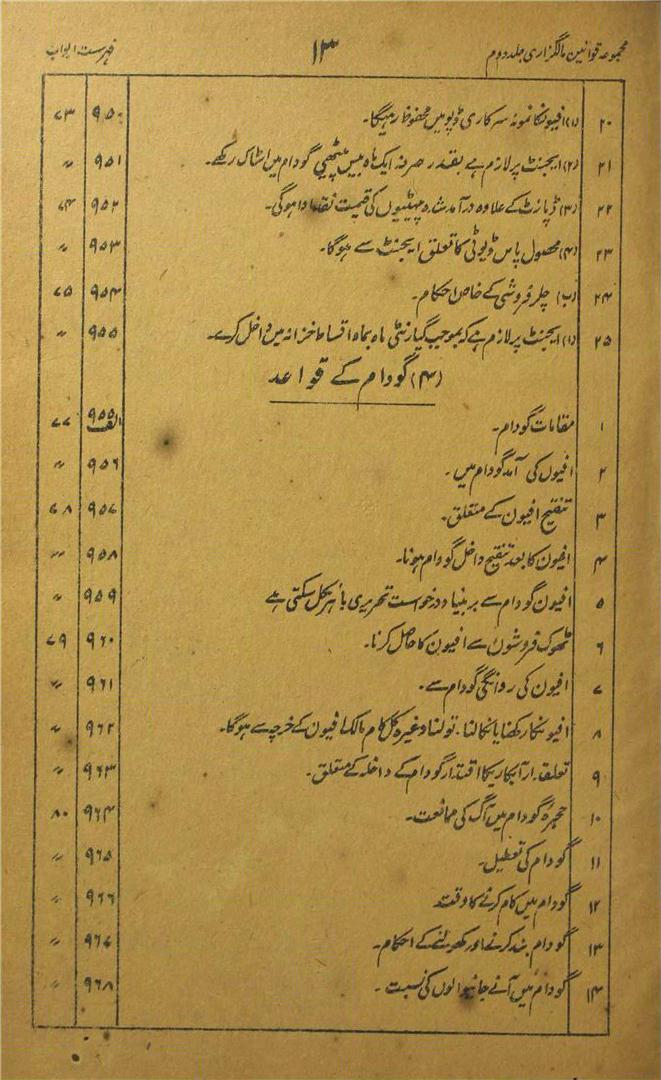 مجموعہ قوانین مالگزاری جلد دوم ۱۳ فہرست ابواب
۲۰ (۱) افیون کا نمونہ سرکاری ڈپو میں محفوظ رہیگا۔ ۹۵۰ ۷۳
۲۱ (۲) ایجنٹ پر لازم ہے بقدر صرفہ ایک ماہ بیس پیٹھی گودام میں اسٹاک رکھے۔ ۹۵۱ 〃
۲۲ (۳) ڈپازٹ کے علاوہ درآمد شدہ پیٹیوں کی قیمت نقد ادا ہوگی۔ ۹۵۲ ۷۴
۲۳ (۴) محصول پاس ڈیوٹی کا تعلق ایجنٹ سے ہوگا۔ ۹۵۳ 〃
۲۴ (ب) چلر فروشی کے خاص احکام۔ ۹۵۴ ۷۵
۲۵ (۱) ایجنٹ پر لازم ہے کہ بموجب گیارنٹی ماہ بماہ اقساط خزانہ میں داخل کرے۔ ۹۵۵ 〃
(۴) گودام کے قواعد
۱ مقامات گودام۔ ۹۵۵ الف ۷۷
۲ افیون کی آمد گودام میں۔ ۹۵۶ 〃
۳ تنقیح افیون کے متعلق۔ ۹۵۷ ۷۸
۴ افیون کا بعد تنقیح داخل گودام ہونا۔ ۹۵۸ 〃
۵ افیون گودام سے بر بنیاد درخواست تحریری باہر نکل سکتی ہے ۹۵۹ 〃
۶ ٹھوک فروشوں سے افیون کا حاصل کرنا۔ ۹۶۰ ۷۹
۷ افیون کی روانگی گودام سے۔ ۹۶۱ 〃
۸ افیون کا رکھنا یا نکالنا۔ تولنا وغیرہ کل کام مالک افیون کے خرچہ سے ہوگا۔ ۹۶۲ 〃
۹ تعلقدار آبکاری کا اقتدار گودام کے داخلہ کے متعلق۔ ۹۶۳ 〃
۱۰ حجرۂ گودام میں آگ کی ممانعت۔ ۹۶۴ ۸۰
۱۱ گودام کی تعطیل۔ ۹۶۵ 〃
۱۲ گودام میں کام کرنے کا وقت ۹۶۶ 〃
۱۳ گودام بند کرنے اور کھولنے کے احکام۔ ۹۶۷ 〃
۱۴ گودام میں آنے جانیوالوں کی نسبت۔ ۹۶۸ 〃